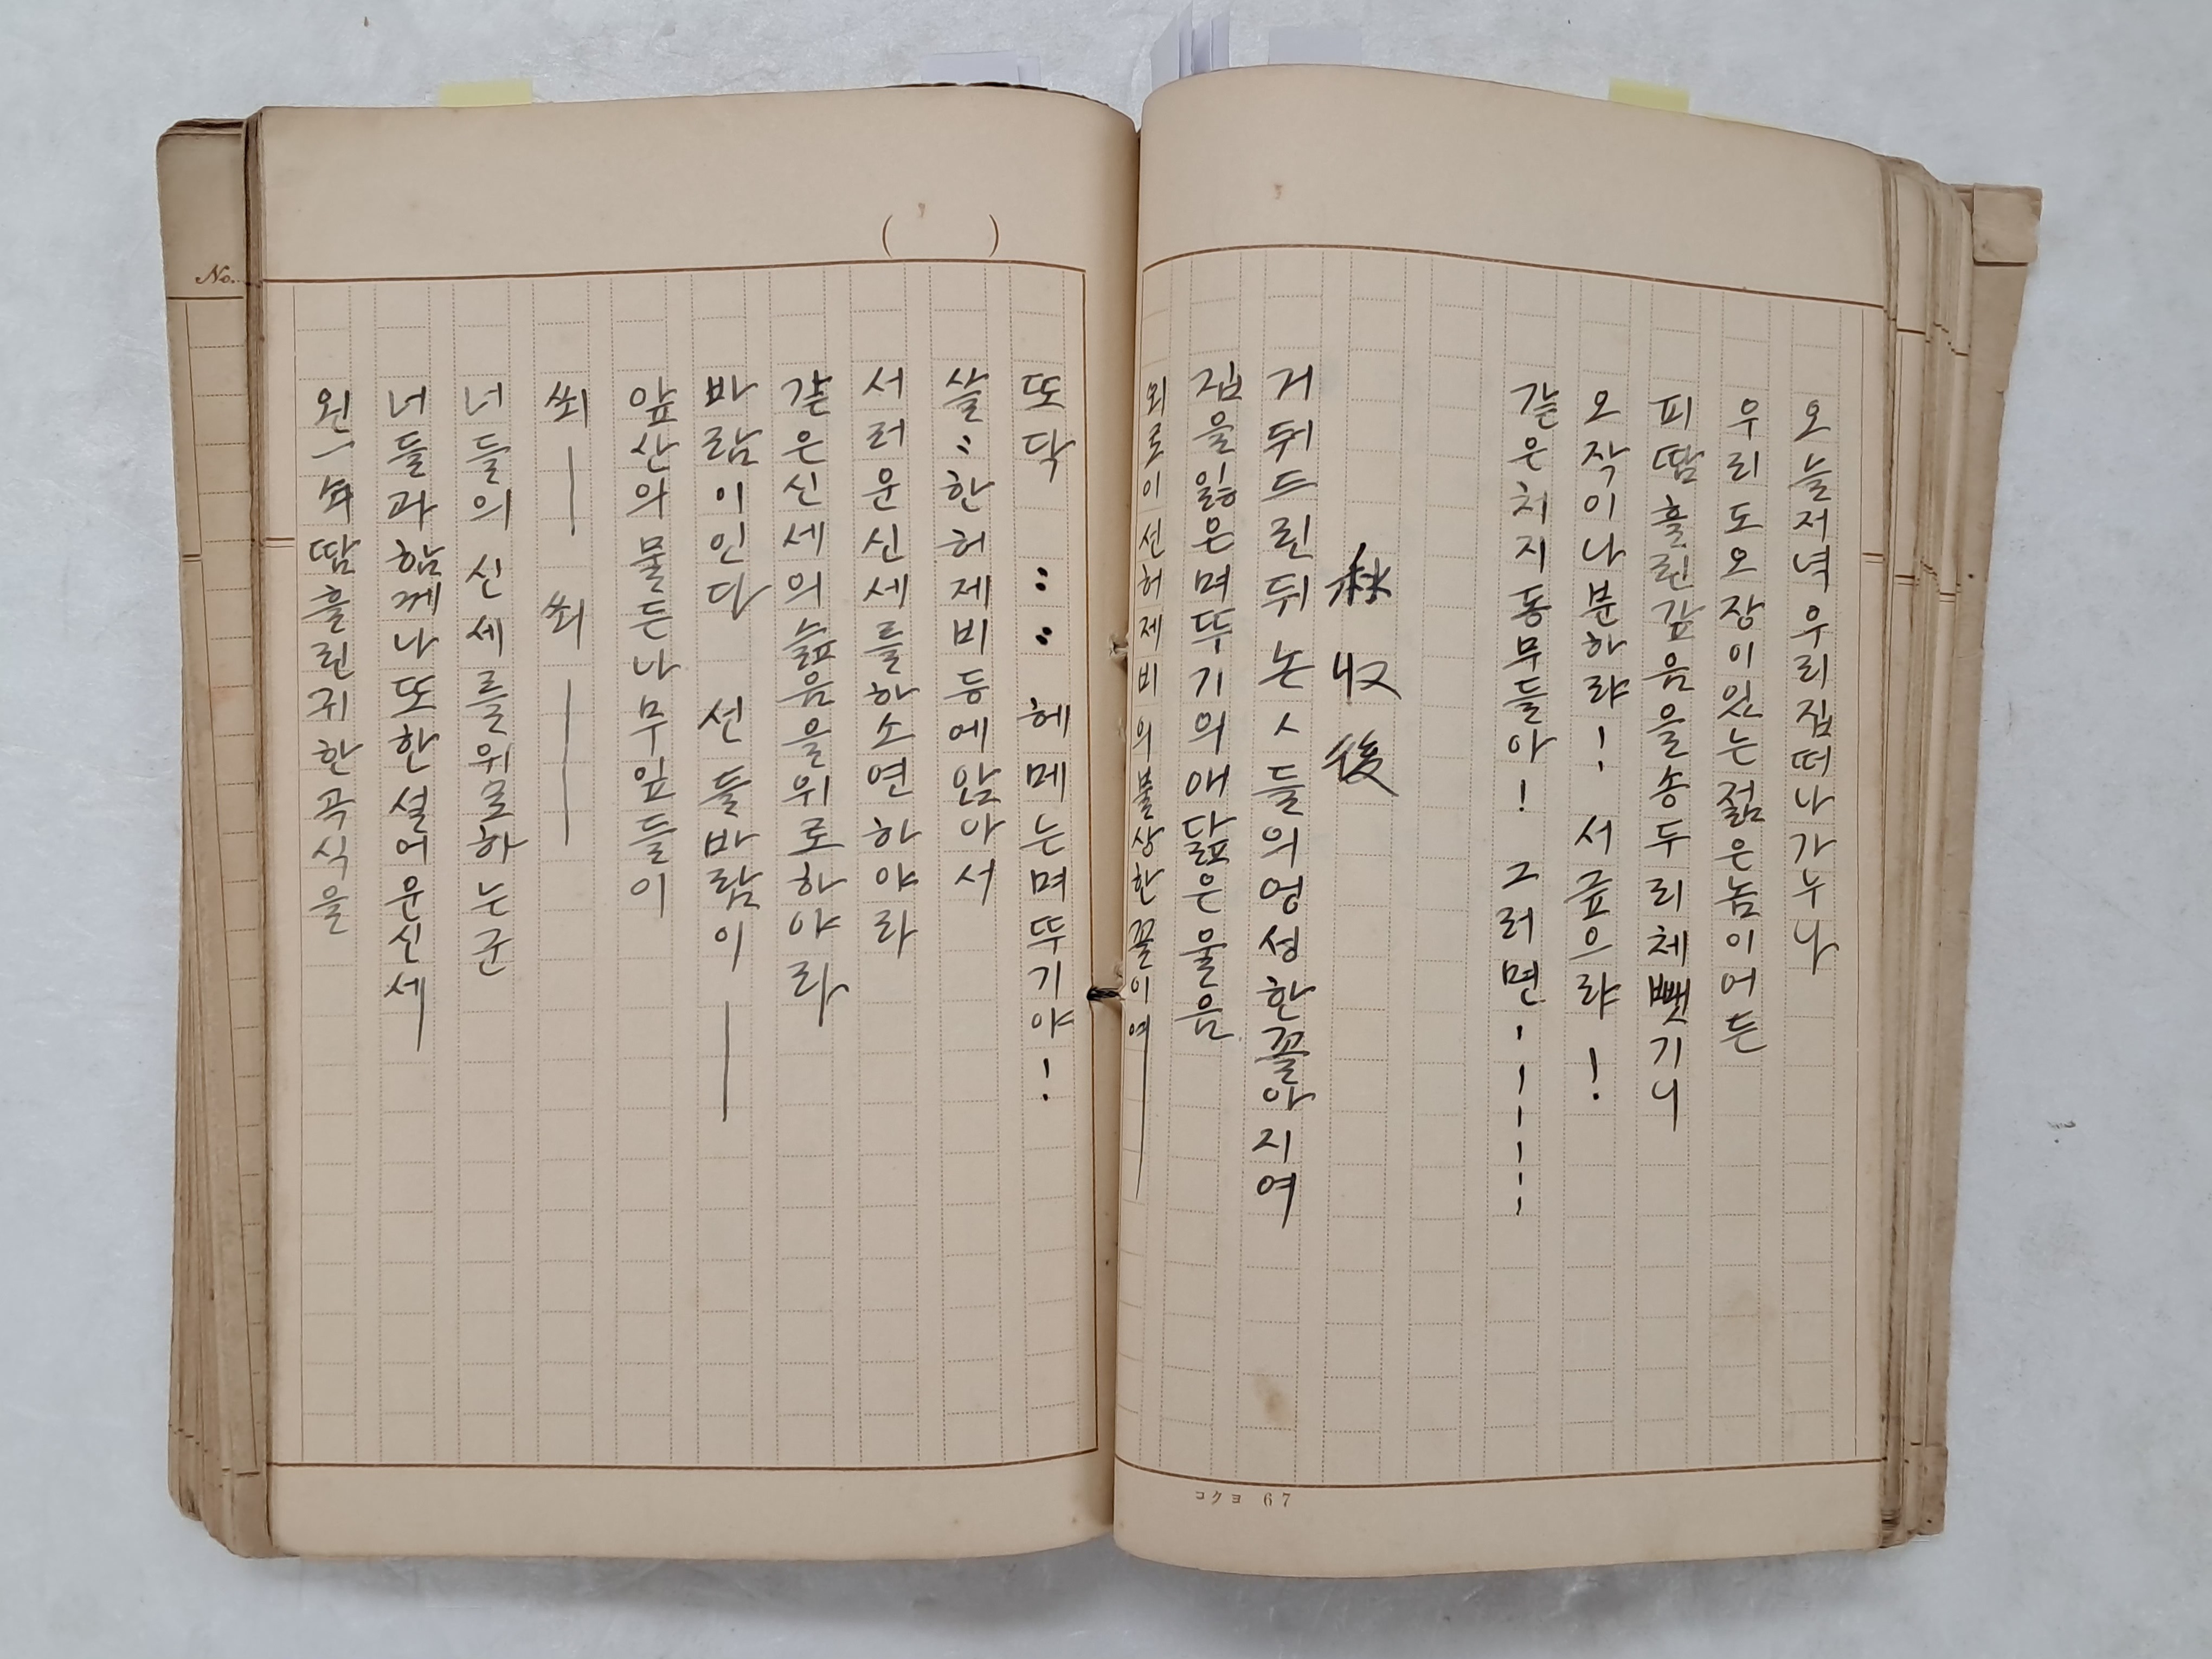 오늘저녁우리집떠나가누나
우리도오장이있는젊은놈이어든
피땀흘린갚음을송두리체뺏기니
오작이나분하랴! 서긆으랴!
같은처지동무들아! 그러면......
秋收後
거둬드린뒤논ㅅ들의엉성한꼴아지여
집을잃은며뚜기의애닲은물음
외로이선허제비의불상한꼴이여—
또닥 :: 헤메는며뚜기야!
쓸〻한허제비등에앉아서
서러운신세를하소연하야라
같은신세의슲음을위로하야라
바람이인다 선들바람이—
앞산의물든나무잎들이
쐬— 쐬—
너들의신세를위로하는군
너들과함께나또한설어운신세
왼一年땀흘린귀한곡식을
コクヨ 67
No.